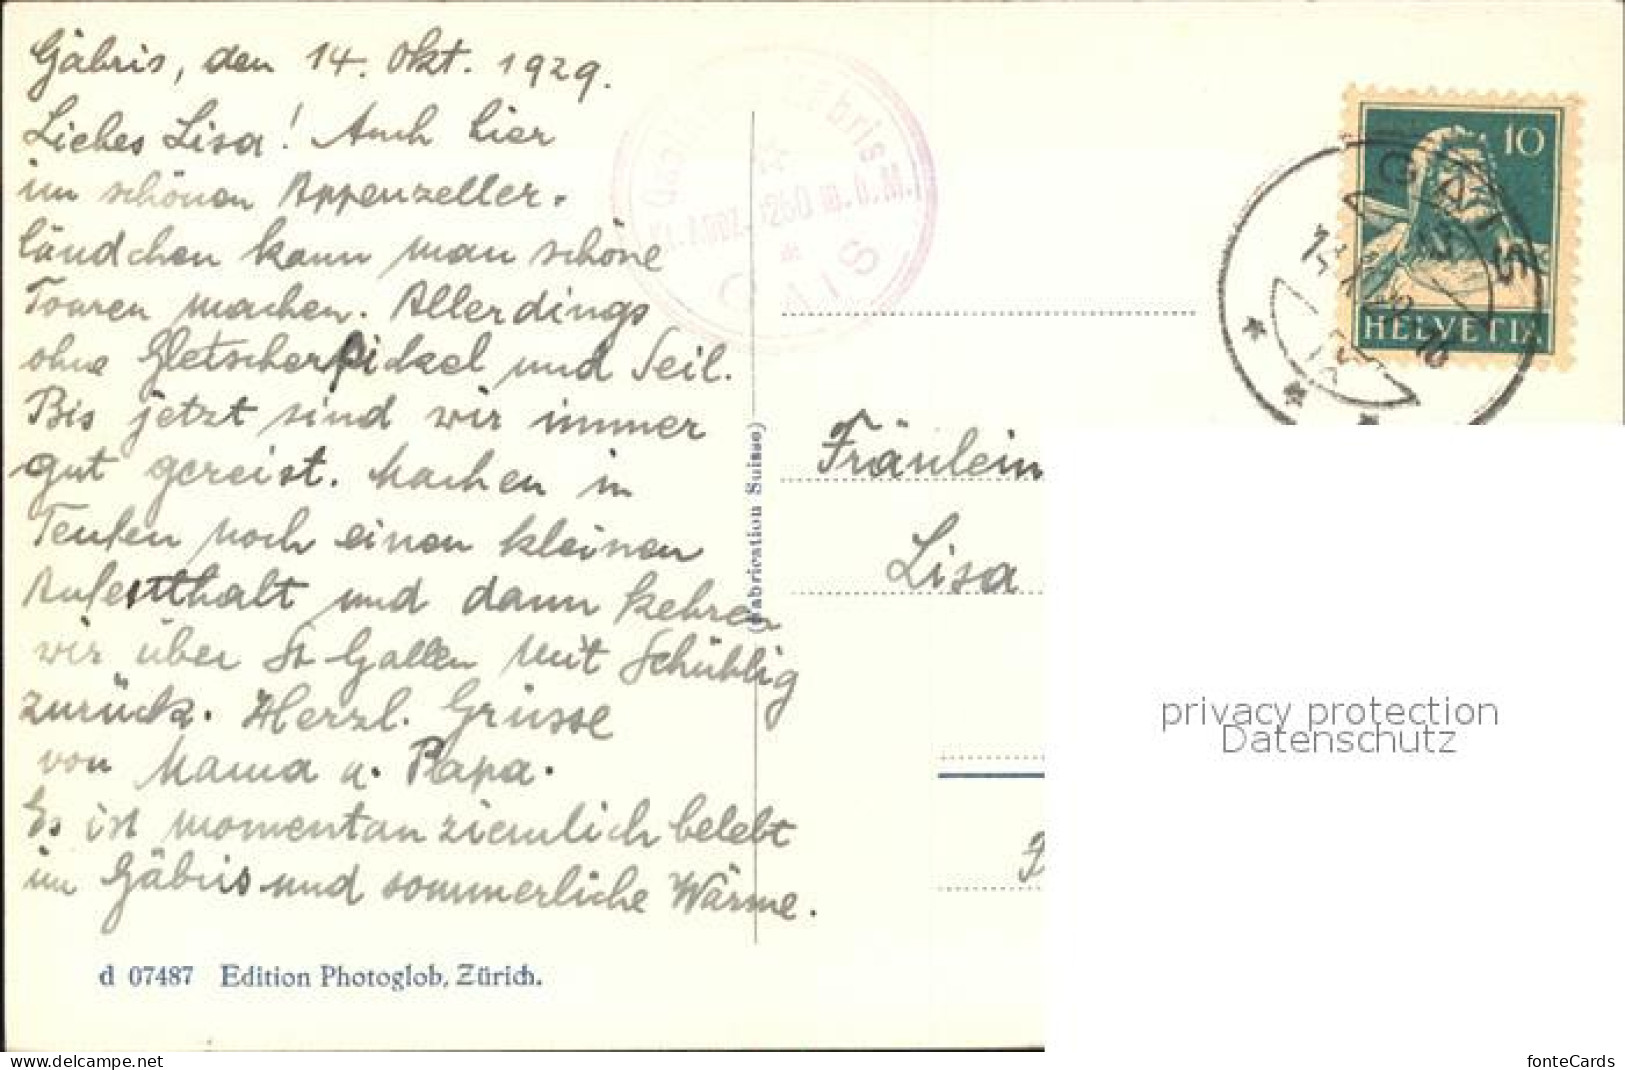 Gäbris, den 14. Okt. 1929.
Liebes Lisa! Auch hier
im schönen Appenzeller-
ländchen kann man schöne
Touren machen. Allerdings
ohne Gletscherpickel und Seil.
Bis jetzt sind wir immer
gut gereist. Machen in
Teufen noch einen kleinen
Aufenthalt und dann kehren
wir über St Gallen mit Schüblig
zurück. Herzl. Grüsse
von Mama u. Papa.
Es ist momentan ziemlich belebt
im Gäbris und sommerliche Wärme.
d 07487 Edition Photoglob, Zürich.
(Fabrication Suisse)
1250 m.ü.M.
GAIS
10
HELVETIA
GAIS
Fräulein
Lisa
privacy protection
Datenschutz
www.delcampe.net
fonteCards